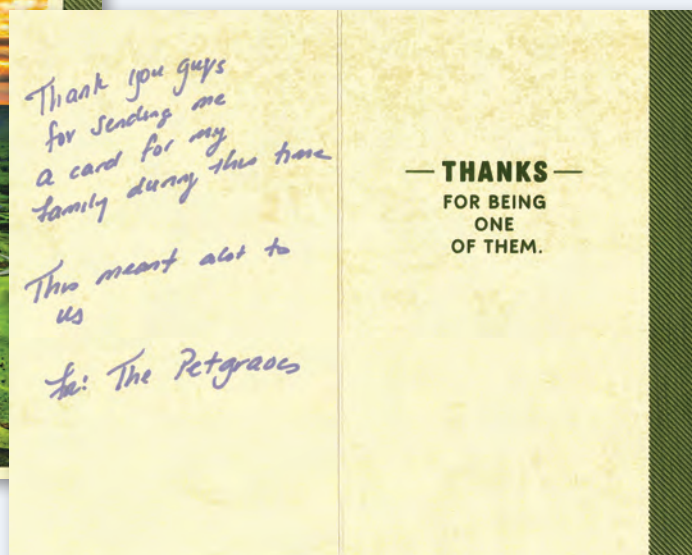 Thank you guys
for sending me
a card for my
family during this time
This meant alot to
us
The Petgraves
— THANKS —
FOR BEING
ONE
OF THEM.